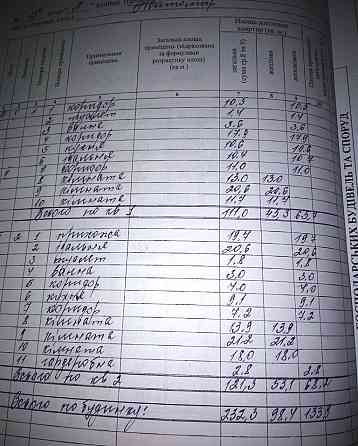 Призначення приміщень
Загальна площа приміщень (зведена за формулами розрахунку площ) (кв.м.)
Площа житлових квартир (кв. м.)
загальна (сума гр. 8 та 9)
житлова
6 7 8
1 коридор 10,3 10,3
2 туалет 1,4 1,4
3 ванна 3,6 3,6
4 коридор 17,9 17,9
5 кухня 10,6 10,6
6 їдальня 10,4 10,4
7 коридор 11,0 11,0
8 кімната 13,0 13,0
9 кімната 20,6 20,6
10 кімната 11,7 11,7
Всього по кв 1 111,0 45,3 65,7
2 1 прихожа 19,7 19,7
2 їдальня 20,6 20,6
3 туалет 1,8 1,8
4 ванна 3,0 3,0
5 коридор 4,0 4,0
6 кухня 9,1 9,1
7 коридор 7,2 7,2
8 кімната 13,9 13,9
9 кімната 21,2 21,2
10 кімната 18,0 18,0
11 гардеробна 2,8 2,8
Всього по кв 2 121,3 53,1 68,2
Всього по будинку: 232,3 98,4 133,9
БУДІВЕЛЬ ТА СПОРУД